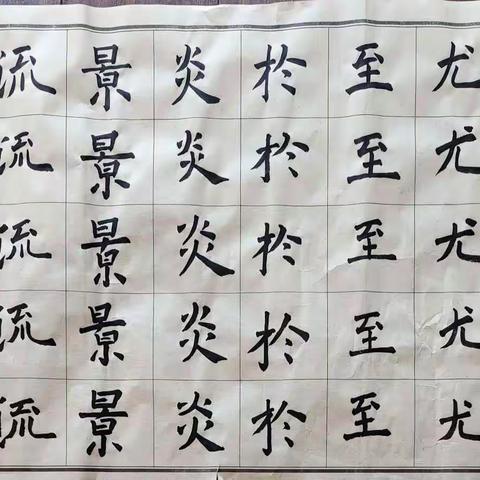 流景炎於至尤
流景炎於至尤
流景炎於至尤
流景炎於至尤
流景炎於至尤